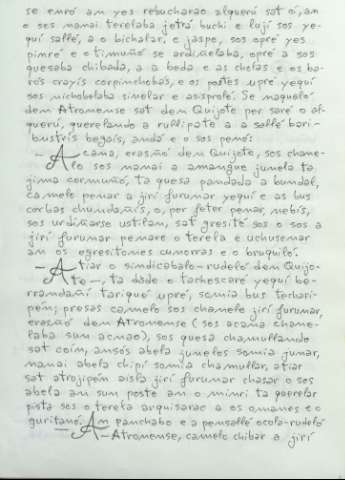 se emró am yes rebucharao alquerú sat ó, an
o ses manai terelaba jetrá buchi e lují sos ye-
quí sallé, a o bichalar, e jaspe, sos opré yes
pimré e o timuñó se ardiñelaba, opré a sos
quesaba chibada, a a beda e as chelas e os ba-
rós crayis corpinchobas, e os postes upré yequí
sos nichobelaba sinelar e asisprofé. Se naquelo
dem Atromense sat dem Quijote per saré o al-
querú, querelando a rullipate a a sallé bari-
bustris begais, andá e o sos penó:
– Acana, erasñó dem Quijote, sos chane-
lo sos manai a amangue junela ta
jima cormuñó, ta quesa pandada a bundal,
camelo penar a jirí furumar yequí e as bus
corbas chundaís, o, por feter penar, nebís,
sos urdicarse ustilam, sat gresité sos o sos a
jirí furumar penare o terela e uchusemar
am os egresitones cunorras e o bruquiló.
– Atiar o simdicabalo – rudeló dem Quijo-
te –, ta dáde o tachescaré yequí be-
rrandañí tariqué upré, somia bus techari-
pén; presas camelo sos chamele jirí furumar,
erasñó dem Atromense (sos acana chane-
laba sun acnao), sos quesa chamullando
sat coin, amsós abela junelos somia junar,
nanai abela chipí somia chamullar, atiar
sat atrojipén aislá jirí furumar chasar o sos
abela am sun poste am o minrí ta querelar
pista sos o terela arquisarao a os omanes e o
guritanó. Am panchabo e a pensallé ocola – rudeló
– Atromense, camelo chibar a jirí